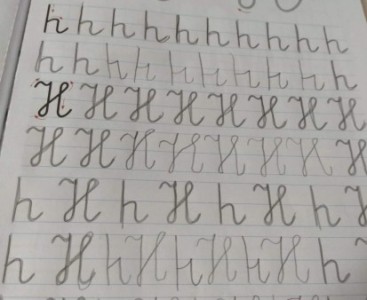 h h h h h h h h h
h h h h h h h h h h
H H H H H H H H
H H H H H H H H
h H h H h H h H
h H h H h H h H h